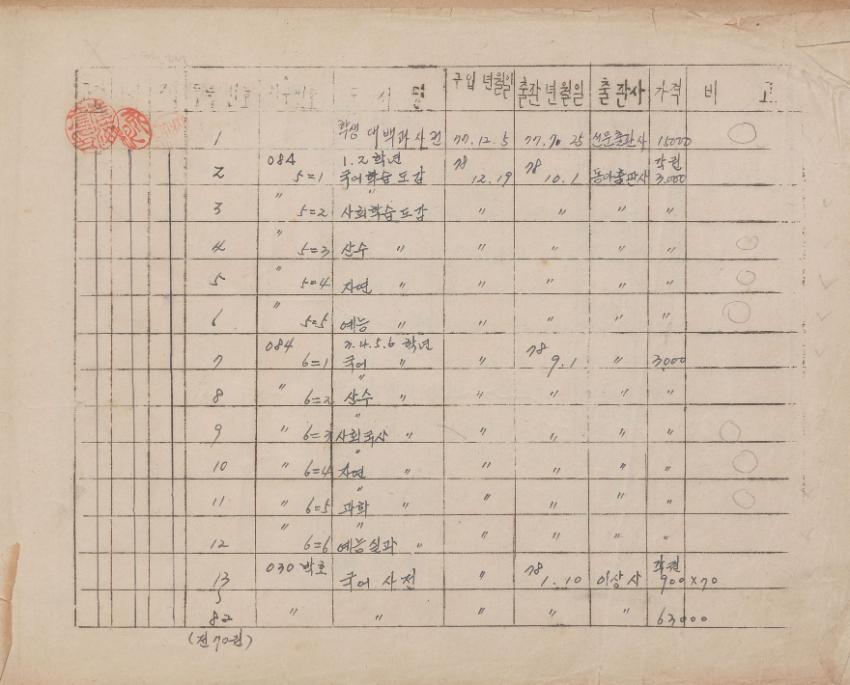 번호 도서명 구입 년월일 출판 년월일 출판사 가격 비 고
1 학생 대백과사전 77.12.5 77.10.25 선문출판사 15000
084 1.2학년 78 78 각권
2 5=1 국어학습도감 12.19 10.1 동아출판사 3.000
3 " 5=2 사회학습도감 " " " "
4 " 5=3 산수 " " " " "
5 " 5=4 자연 " " " " "
6 " 5=5 예능 " " " " "
084 3.4.5.6 학년 78
7 6=1 국어 " " 9.1 " 3.000
8 " 6=2 산수 " " " " "
9 " 6=3 사회국사 " " " " "
10 " 6=4 자연 " " " " "
11 " 6=5 과학 " " " " "
12 " 6=6 예능실과 " " " " "
030 박호 78 각권
13 국어 사전 " 1.10 이상사 900×70
82 " " " " " 63000
(전70권)